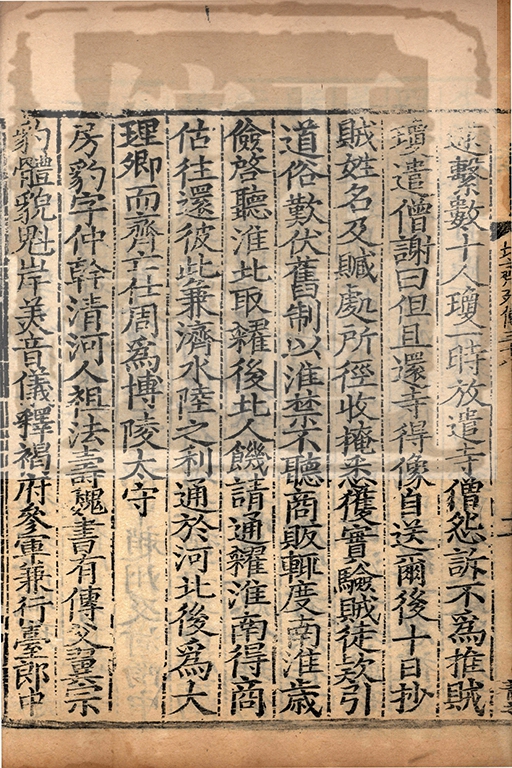 逮繫數十人瓊一時放遣寺僧怨訴不爲推賊
瓊遣僧謝曰但且還寺得像自送爾後十日抄
賊姓名及贓處所徑收掩悉獲實驗賊徒欵引
道俗歎伏舊制以淮禁不聽商販輒度南淮歲
儉啓聽淮北取糴後北人饑請通糴淮南得商
估往還彼此兼濟水陸之利通於河北後爲大
理卿而齊亡仕周爲博陵太守
房豹字仲幹清河人祖法壽魏書有傳父翼宗
豹體貌魁岸美音儀釋褐府參軍兼行臺郎中